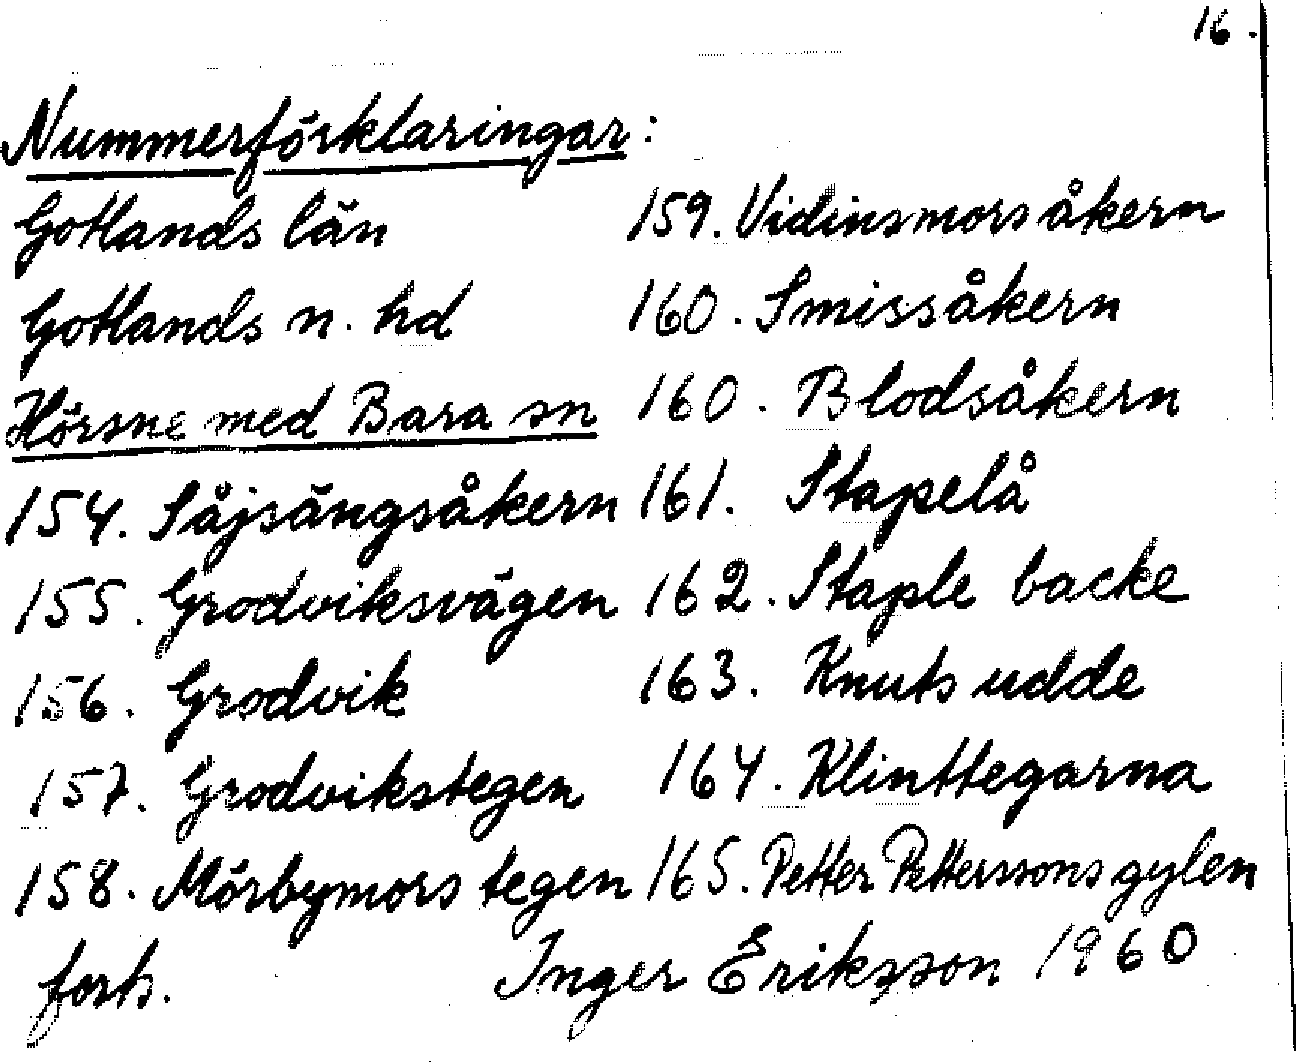 16.
Nummerförklaringar:
Gotlands län
Gotlands n. hd
Hörsne med Bara sn
154. Såjsängsåkern
155. Grodviksvägen
156. Grodvik
157. Grodvikstegen
158. Mörbymors tegen
forts.
159. Vidinsmors åkern
160. Smissåkern
160. Blodsåkern
161. Stapelå
162. Staple backe
163. Knuts udde
164. Klinttegarna
165. Petter Petterssons gylen
Inger Eriksson 1960